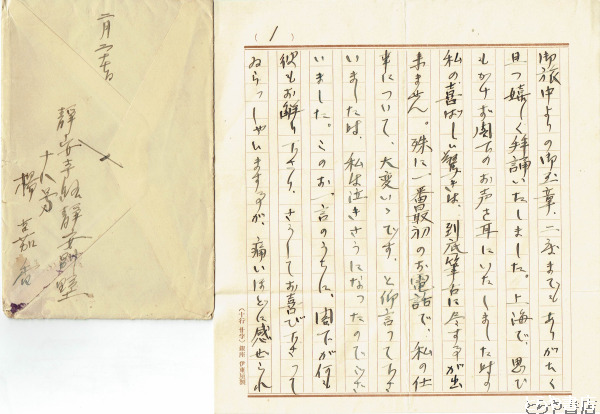 (1)
御旅中よりの御玉章、二度までもありがたく
且つ嬉しく拝誦いたしました。上海で、思ひ
もかけず閣下のお声を耳にいたしました時の
私の喜ばしい驚きは、到底筆舌に尽す事が出
来ません。殊に一番最初のお電話で、私の仕
事について、大変いゝです。と仰言って下さ
いましたは、私は泣きさうになったのでござ
いました。このお一言のうちに、閣下が何も
彼もお解り下さり、さうしてお喜び下さって
ゐらっしゃいます事が、痛いほどに感ぜられ
(十行 廿字) 銀座 伊東屋製
二月
靜安寺路靜安別墅
十八号
楊
とらや書店